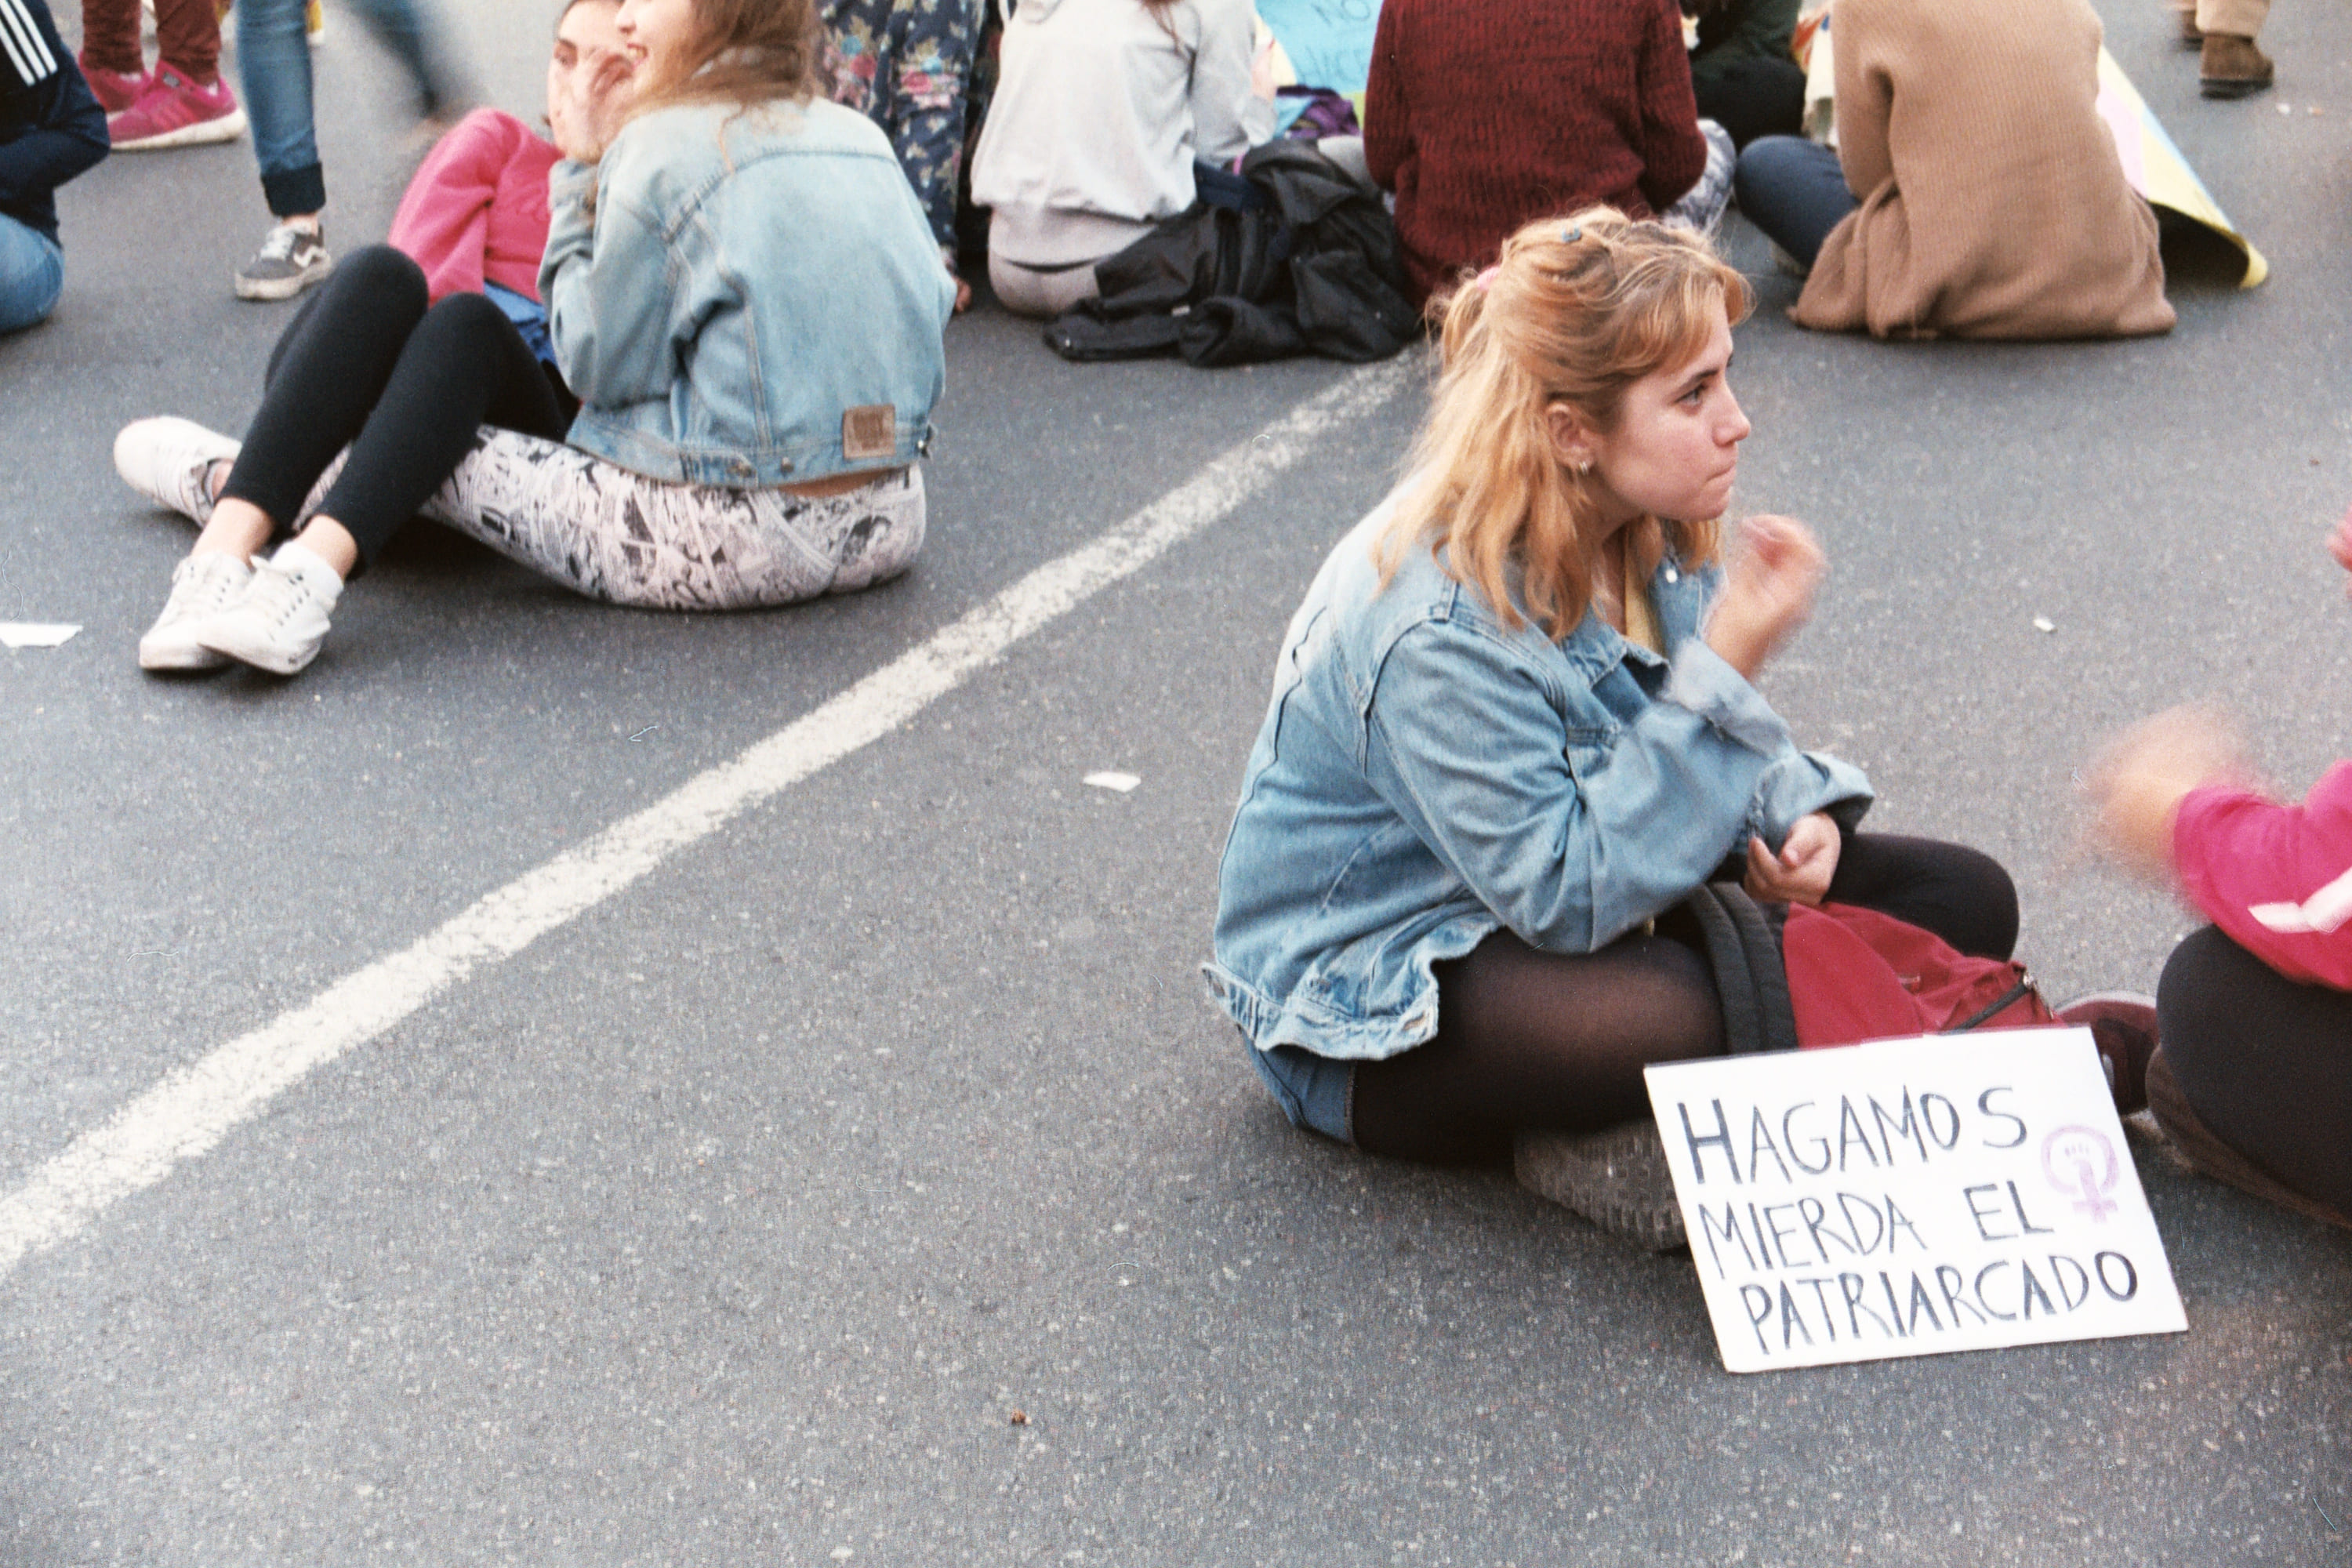 NO
HAGAMOS
MIERDA EL
PATRIARCADO